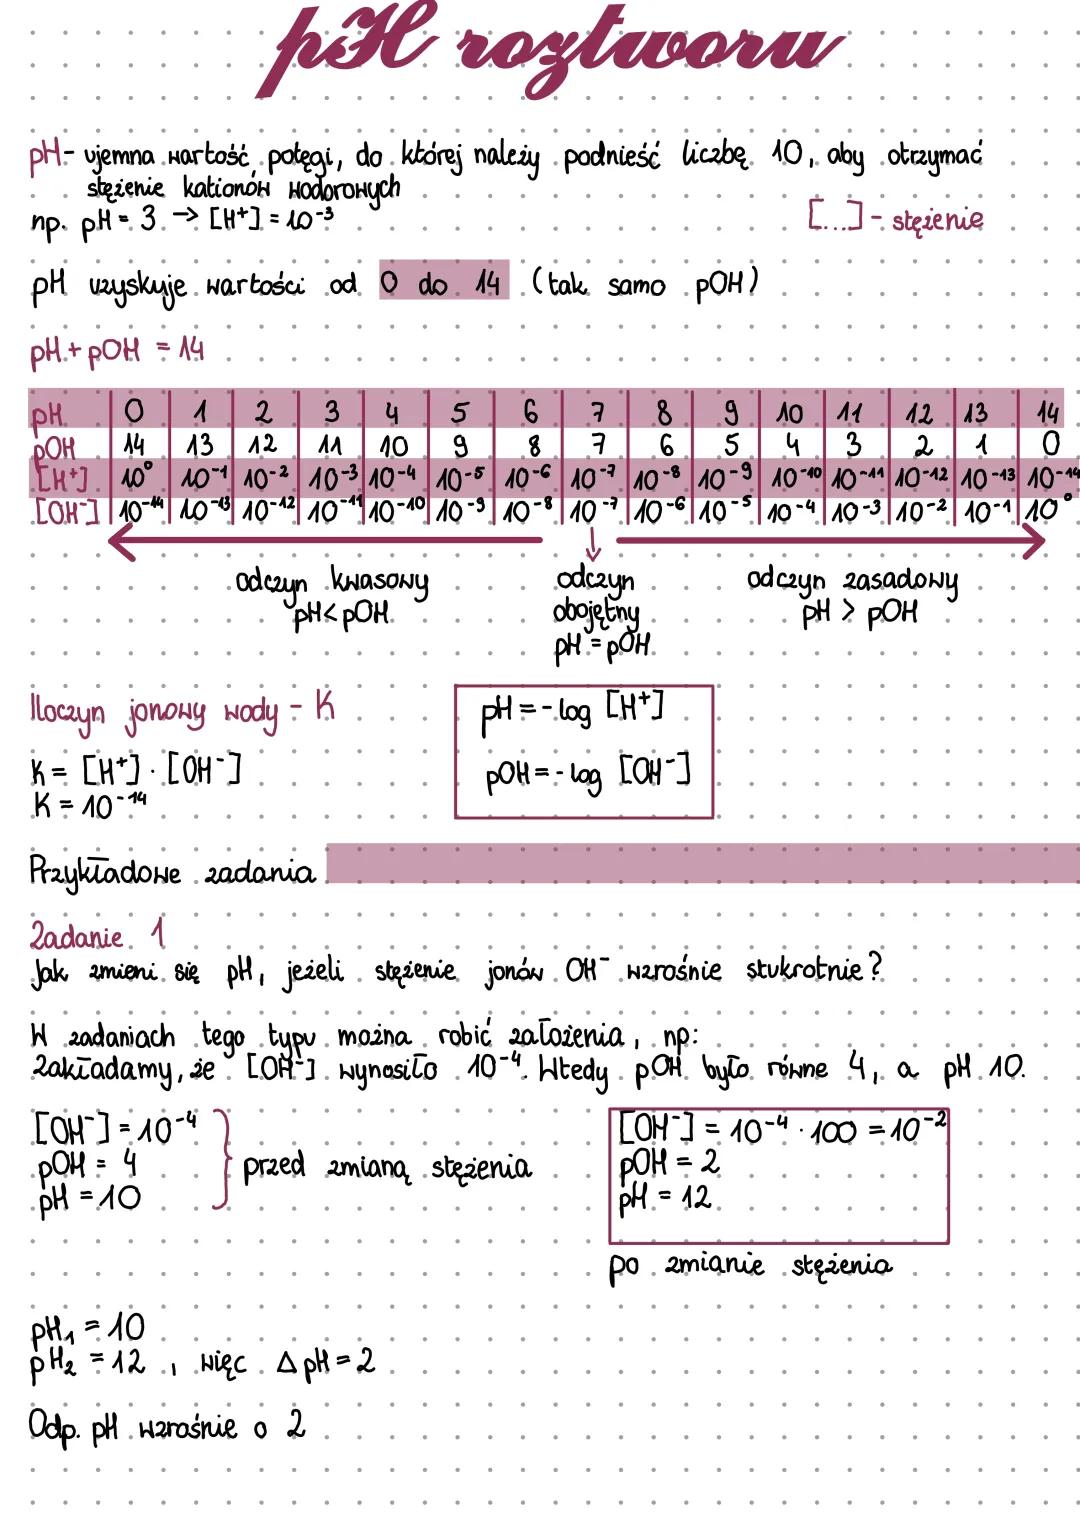 pH roztworu
pH - ujemna wartość potęgi, do której należy podnieść liczbę 10, aby otrzymać
stężenie kationów wodorowych
np. pH = 3 → [H⁺] = 10⁻³
[...] - stężenie
pH uzyskuje wartości od 0 do 14 (tak samo pOH)
pH + pOH = 14
pH 0 1 2 3 4 5 6 7 8 9 10 11 12 13 14
pOH 14 13 12 11 10 9 8 7 6 5 4 3 2 1 0
[H⁺] 10⁰ 10⁻¹ 10⁻² 10⁻³ 10⁻⁴ 10⁻⁵ 10⁻⁶ 10⁻⁷ 10⁻⁸ 10⁻⁹ 10⁻¹⁰ 10⁻¹¹ 10⁻¹² 10⁻¹³ 10⁻¹⁴
[OH⁻] 10⁻¹⁴ 10⁻¹³ 10⁻¹² 10⁻¹¹ 10⁻¹⁰ 10⁻⁹ 10⁻⁸ 10⁻⁷ 10⁻⁶ 10⁻⁵ 10⁻⁴ 10⁻³ 10⁻² 10⁻¹ 10⁰
odczyn kwasowy
pH < pOH
odczyn
obojętny
pH = pOH
odczyn zasadowy
pH > pOH
Iloczyn jonowy wody - K
K = [H⁺] · [OH⁻]
K = 10⁻¹⁴
pH = - log [H⁺]
pOH = - log [OH⁻]
Przykładowe zadania
Zadanie 1
Jak zmieni się pH, jeżeli stężenie jonów OH⁻ wzrośnie stukrotnie?
W zadaniach tego typu można robić założenia, np:
Zakładamy, że [OH⁻] wynosiło 10⁻⁴. Wtedy pOH było równe 4, a pH 10.
[OH⁻] = 10⁻⁴
pOH = 4
pH = 10
przed zmianą stężenia
[OH⁻] = 10⁻⁴ · 100 = 10⁻²
pOH = 2
pH = 12
po zmianie stężenia
pH₁ = 10
pH₂ = 12, więc Δ pH = 2
Odp. pH wzrośnie o 2